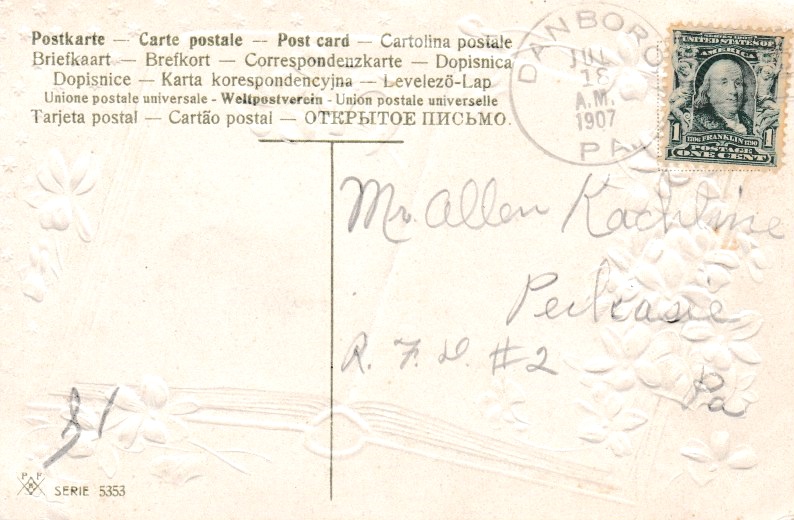 Postkarte — Carte postale — Post card — Cartolina postale
Briefkaart — Brefkort — Correspondenzkarte — Dopisnica
Dopisnice — Karta korespondencyjna — Levelező-Lap
Unione postale universale - Weltpostverein - Unión postale universelle
Tarjeta postal — Cartão postal — ОТКРЫТОЕ ПИСЬМО.
DANBORO
JUL
18
A.M.
1907
PA.
UNITED STATES OF
AMERICA
1 FRANKLIN 1
POSTAGE
ONE CENT
Mr. Allen Kachline
Perkasie
R. F. D. #2
Pa
SERIE 5353